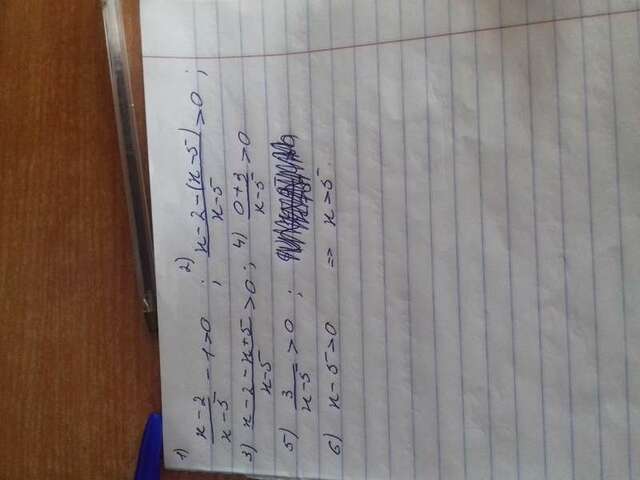 1) x-2/x-5 - 1>0 ; 2) x-2-(x-5)/x-5 >0 ;
3) x-2-x+5/x-5 >0 ; 4) 0+3/x-5 >0
5) 3/x-5 >0 ;
6) x-5>0 => x>5